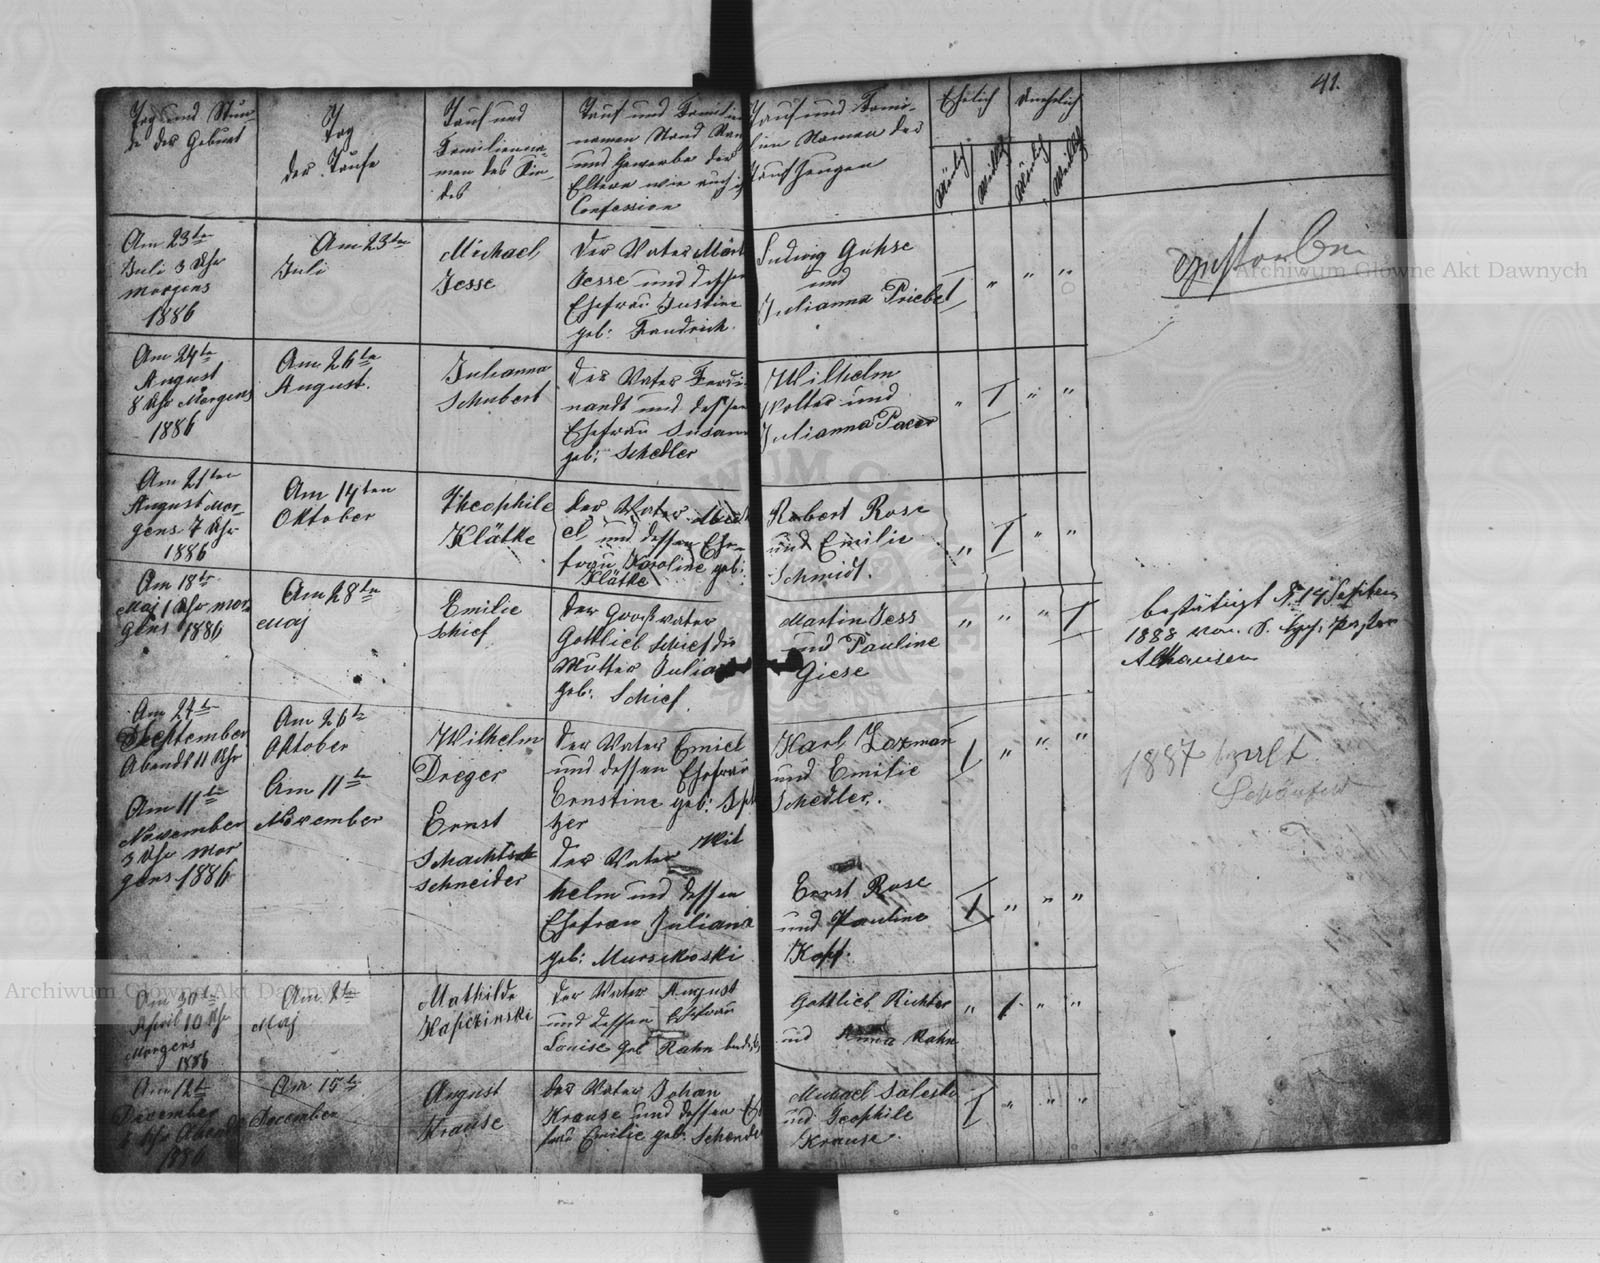 41.
Tag und Stun-
de der Geburt
Tag
der Taufe
Tauf und
Familienna-
men des Kin-
des
Tauf und Familien
namen Stand
und Gewerbe der
Eltern wie auch
Confession
Tauf und Fami-
lien Namen der
Taufzeugen
Ehelich
Unehelich
Männlich
Weiblich
Männlich
Weiblich
Am 23te
Juli 3 Uhr
morgens
1886
Am 23ten
Juli
Michael
Jesse
Der Vater
Jesse und dessen
Ehefrau Justine
geb: Fandrich.
Ludwig Guhse
und
Julianna Priebe
1 " " "
verstorben
Am 24te
August
8 Uhr Morgens
1886
Am 26te
August.
Julianna
Schubert
Der Vater Ferdi-
nandt und dessen
Ehefrau Susann
geb: Schedler
Wilhelm
Wolter und
Julianna
" 1 " "
Am 21ten
August Mor-
gens 7 Uhr
1886
Am 14ten
Oktober
Theophile
Klätke
Der Vater
und dessen Ehe-
frau Karoline geb:
Klätke
Robert Rose
und Emilie
Schmidt.
" 1 " "
Am 18te
Maj 1 Uhr mor
gens 1886
Am 28te
Maj
Emilie
Schief
Der Großvater
Gottlieb Schief die
Mutter Julia
geb: Schief.
Martin Jess
und Pauline
Giese
" " " 1
bestätigt 14 Septem
1888 von
Althausen
Am 27te
September
Abends 11 Uhr
Am 26te
Oktober
Wilhelm
Dreger
Der Vater Emiel
und dessen Ehefrau
Ernstine geb:
zer
Karl
und Emilie
Schedler.
1 " " "
1887
Am 11te
November
3 Uhr Mor
gens 1886
Am 11te
November
Ernst
Schachtsch
schneider
Der Vater Wil
helm und dessen
Ehefrau Juliana
geb:
Ernst Rose
und Pauline
1 " " "
Am 30te
April 10 Uhr
Morgens
1886
Am 2te
Maj
Mathilde
Der Vater August
und dessen Ehefrau
Louise geb Rahn
Gottlieb Richter
und Anna Rahn
" 1 " "
Am 12te
Dezember
Uhr Abends
1886
Am 15te
Dezember
August
Krause
Der Vater Johan
Krause und dessen
Emilie geb:
und Teophile
Krause.
1 " " "
Archiwum Główne Akt Dawnych
Archiwum Główne Akt Dawnych